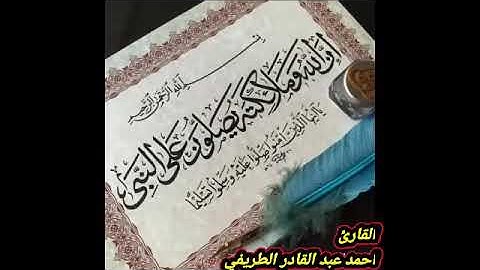 بسم الله الرحمن الرحيم
إن الله وملائكته يصلون على النبي
يا أيها الذين آمنوا صلوا عليه وسلموا تسليما
القارئ
احمد عبد القادر الطريفي